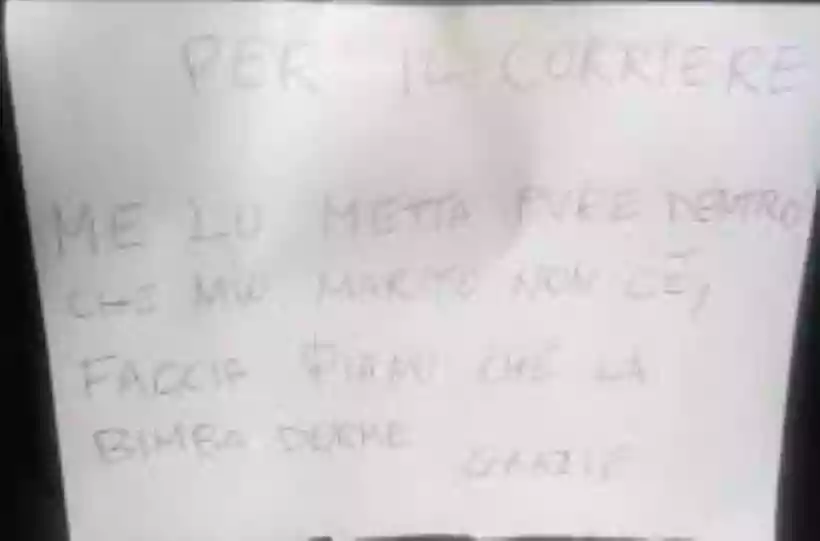 PER IL CORRIERE
ME LO METTA PURE DENTRO
CHE MIO MARITO NON CÈ,
FACCIA PIANO CHE LA
BIMBA DORME
GRAZIE